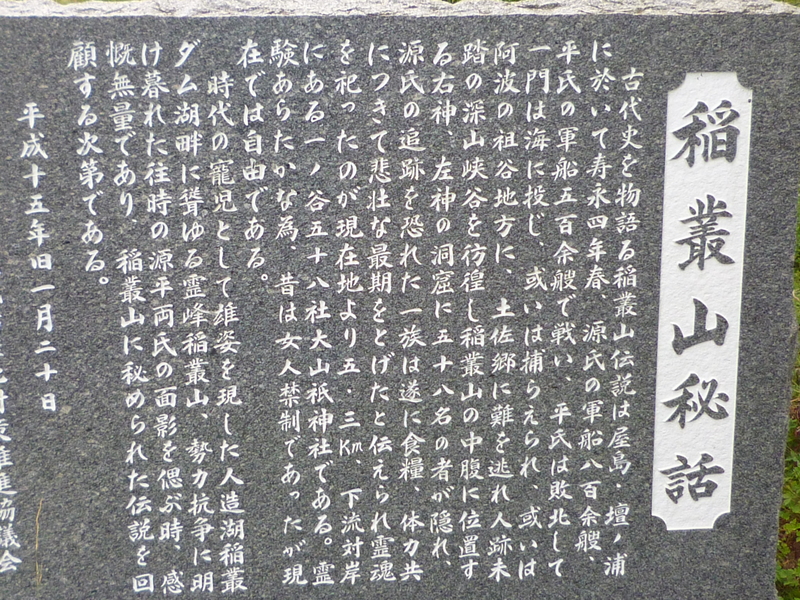 稲叢山秘話
古代史を物語る稲叢山伝説は屋島・壇ノ浦
に於いて寿永四年春、源氏の軍船八百余艘、
平氏の軍船五百余艘で戦い、平氏は敗北して
一門は海に投じ、或いは捕らえられ、或いは
阿波の祖谷地方に、土佐郷に難を逃れ人跡未
踏の深山峡谷を彷徨し稲叢山の中腹に位置す
る右神、左神の洞窟に五十八名の者が隠れ、
源氏の追跡を恐れた一族は遂に食糧、体力共
につきて悲壮な最期をとげたと伝えられ霊魂
を祀ったのが現在地より五・三Km、下流対岸
にある一ノ谷五十八社大山祇神社である。霊
験あらたかな為、昔は女人禁制であったが現
在では自由である。
時代の寵児として雄姿を現した人造湖稲叢
ダム湖畔に聳ゆる霊峰稲叢山、勢力抗争に明
け暮れた往時の源平両氏の面影を偲ぶ時、感
慨無量であり、稲叢山に秘められた伝説を回
顧する次第である。
平成十五年旧一月二十日
推進協議会